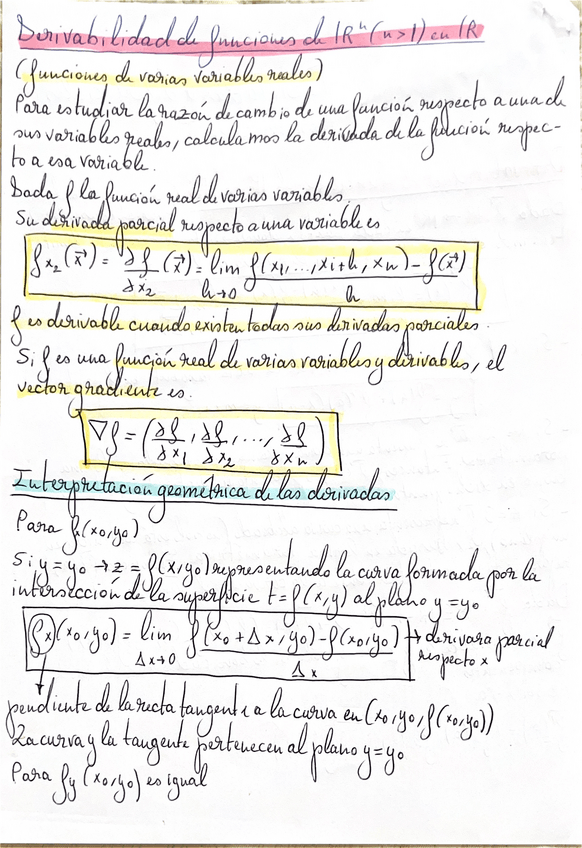 Derivabilidad de funciones de ℝⁿ (n>1) en ℝ
(funciones de varias variables reales)
Para estudiar la razón de cambio de una función respecto a una de
sus variables reales, calculamos la derivada de la función respec-
to a esa variable.
Dada f la función real de varias variables.
Su derivada parcial respecto a una variable es
f x₂ (x⃗) = ∂f/∂x₂ (x⃗) = lim h→0 f(x₁,...,xi+h, xn) - f(x⃗) / h
f es derivable cuando existen todas sus derivadas parciales.
Si f es una función real de varias variables y derivables, el
vector gradiente es.
∇f = (∂f/∂x₁, ∂f/∂x₂, ..., ∂f/∂xn)
Interpretación geométrica de las derivadas
Para fx(x₀,y₀)
Si y = y₀ → z = f(x,y₀) representando la curva formada por la
intersección de la superficie t = f(x,y) al plano y = y₀
fx(x₀,y₀) = lim Δx→0 f(x₀+Δx, y₀) - f(x₀,y₀) / Δx → derivara parcial
respecto x
pendiente de la recta tangente a la curva en (x₀,y₀,f(x₀,y₀))
La curva y la tangente pertenecen al plano y = y₀
Para fy (x₀,y₀) es igual